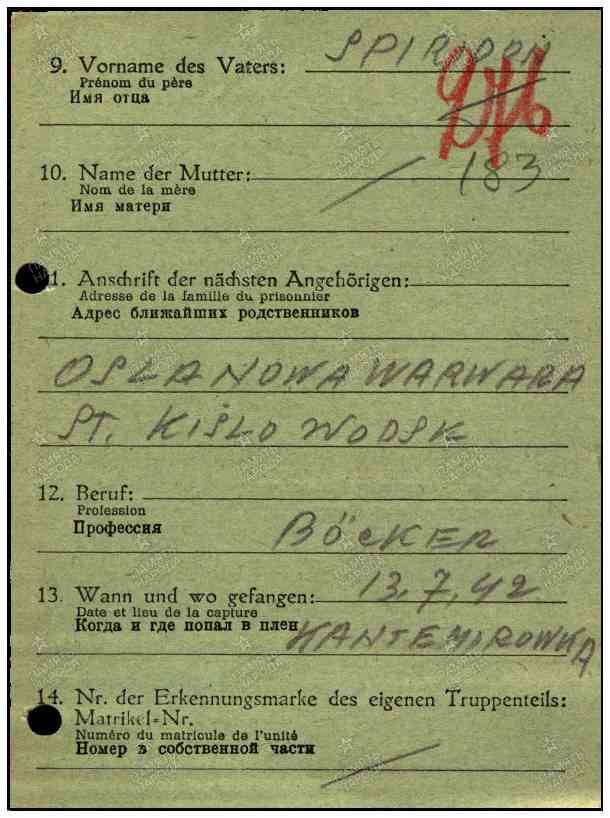 9. Vorname des Vaters: SPIRIDON
Prénom du père
Имя отца
10. Name der Mutter:
183
Nom de la mère
Имя матери
11. Anschrift der nächsten Angehörigen:
Adresse de la famille du prisonnier
Адрес ближайших родственников
OSLANOWA WARWARA
ST. KISLOWODSK
12. Beruf:
Profession
Профессия
BÖCKER
13. Wann und wo gefangen: 13.7.42
Date et lieu de la capture
Когда и где попал в плен
KANTEMIROWKA
14. Nr. der Erkennungsmarke des eigenen Truppenteils:
Matrikel=Nr.
Numéro du matricule de l'unité
Номер в собственной части